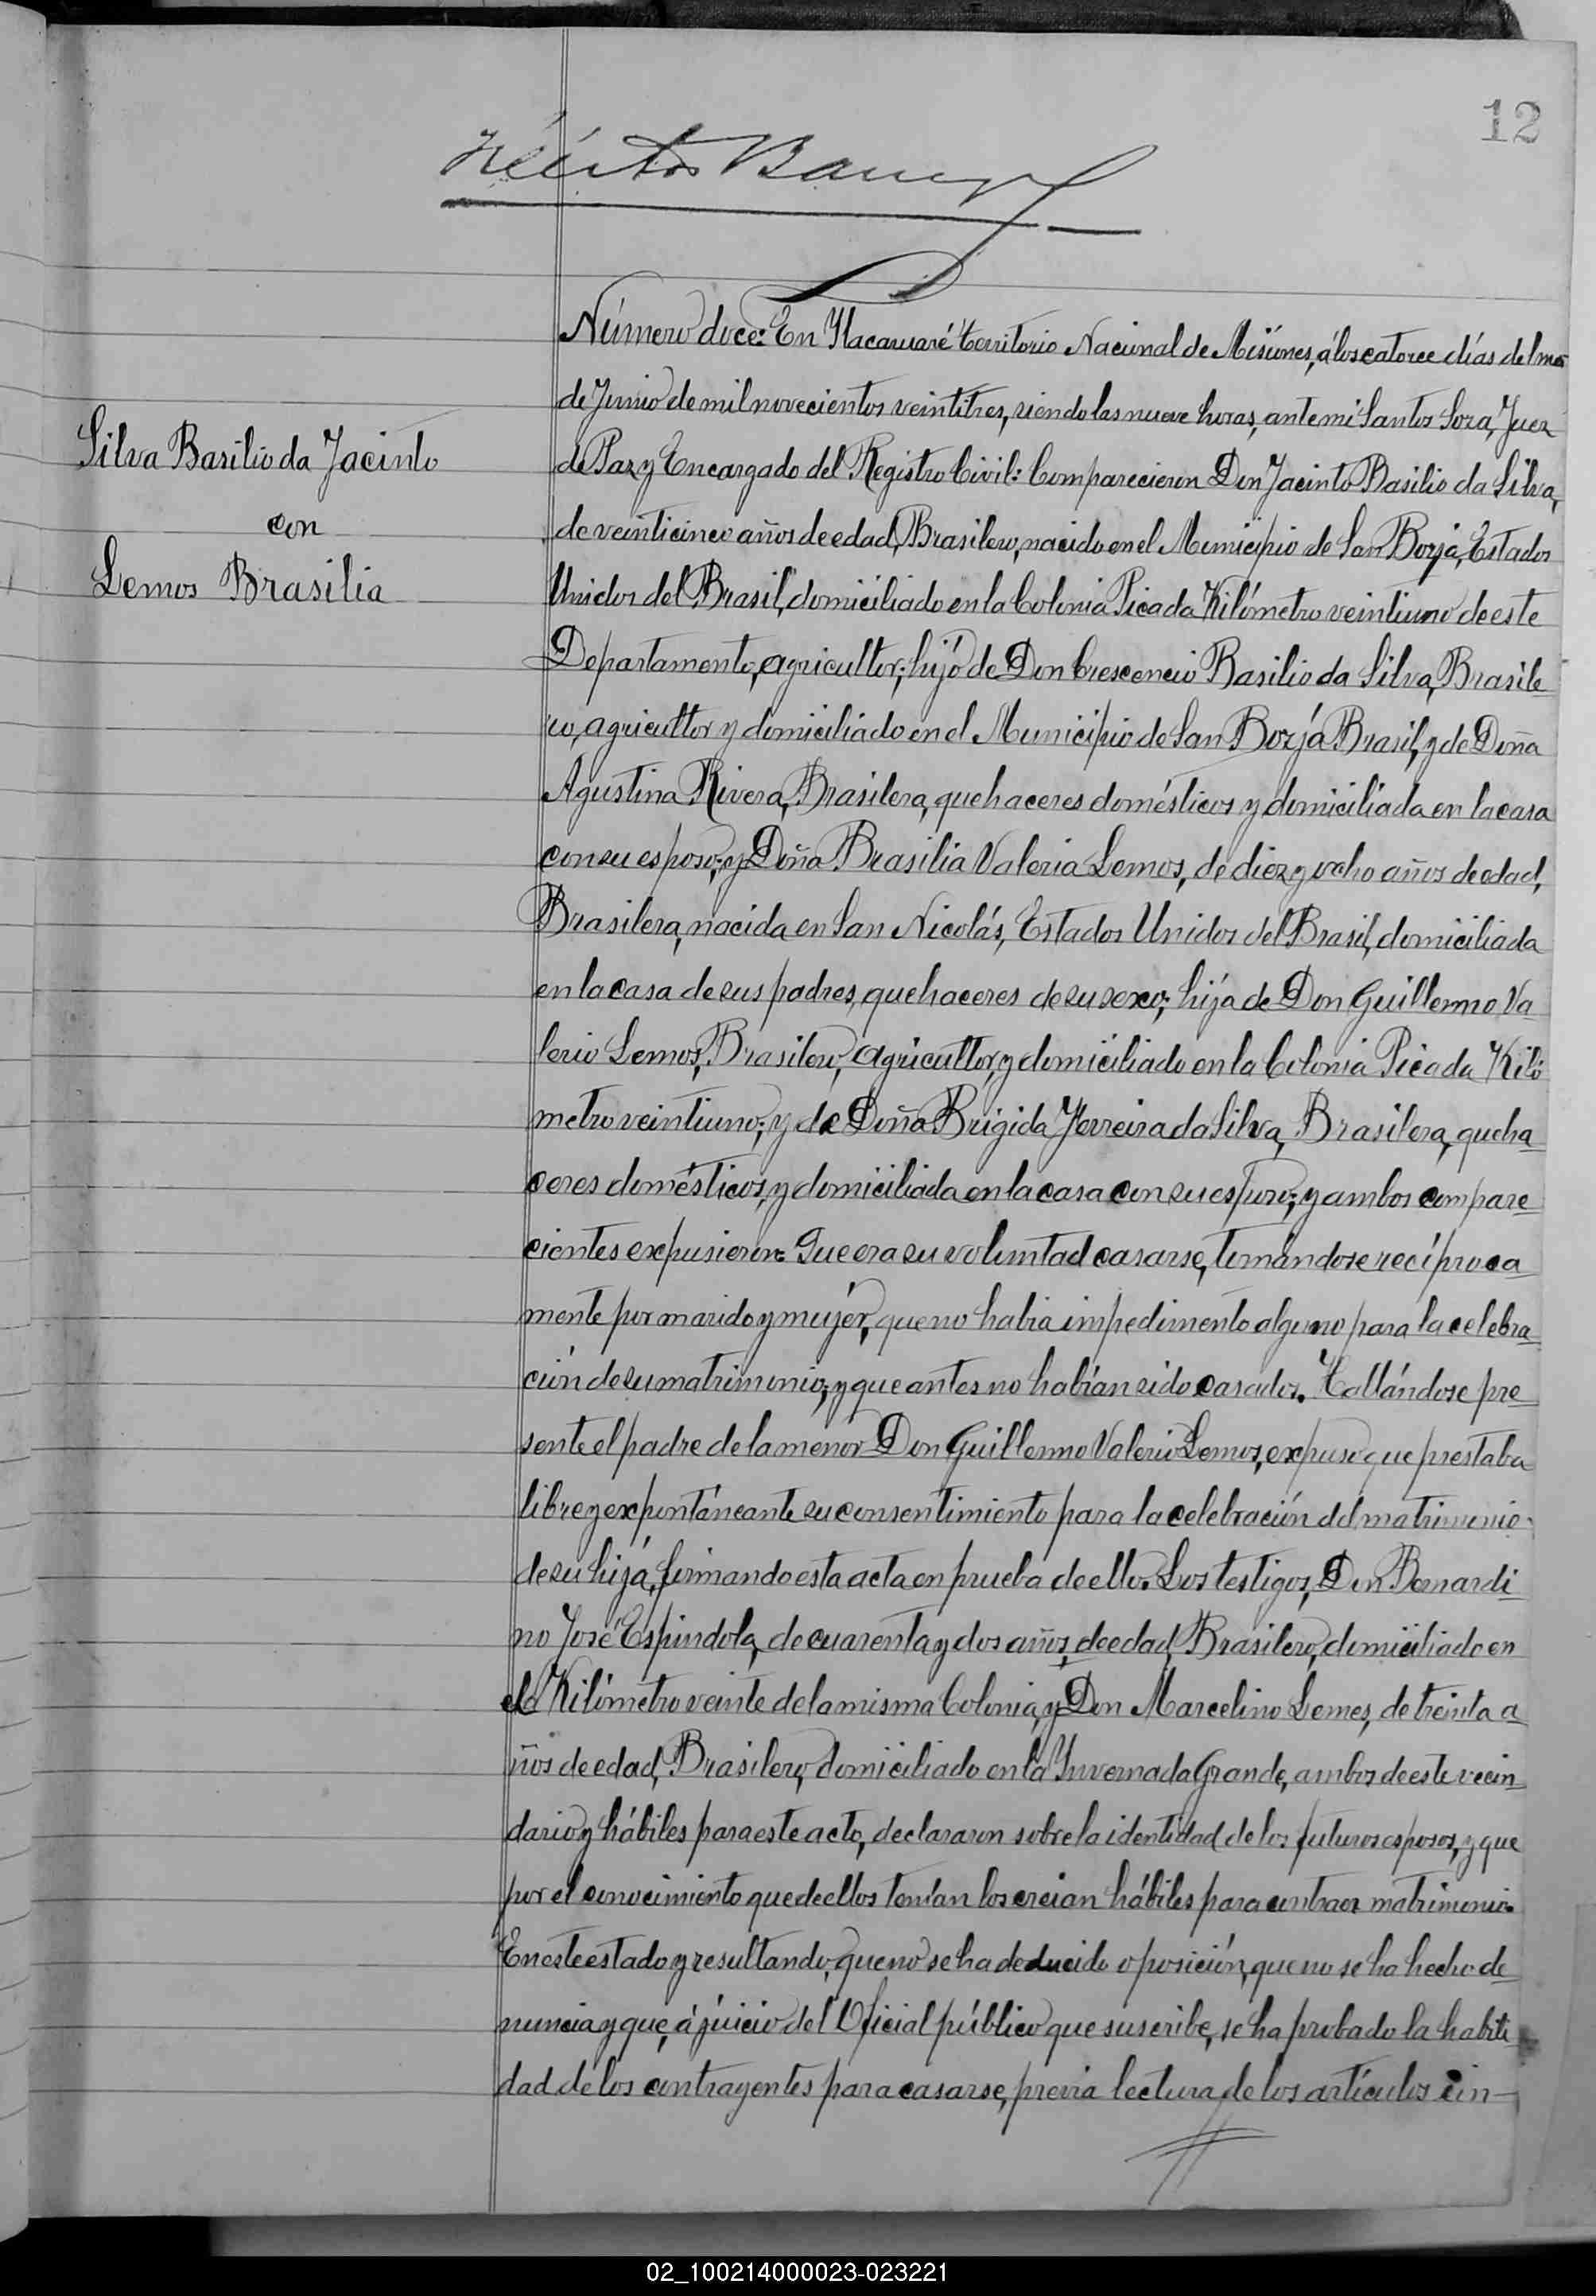 12
Héctor
Número doce: En Itacaruaré territorio Nacional de Misiones, á los catorce días del mes
de Junio de mil novecientos veintitres, siendo las nueve horas, ante mi Santos Sosa, Juez
Silva Basilio da Jacinto
de Paz y Encargado del Registro Civil: Comparecieron Don Jacinto Basilio da Silva,
con
de veinticinco años de edad, Brasilero, nacido en el Municipio de San Borja, Estados
Lemos Brasilia
Unidos del Brasil, domiciliado en la Colonia Picada Kilómetro veintiuno de este
Departamento, agricultor; hijo de Don Crescencio Basilio da Silva, Brasile
ro, agricultor y domiciliado en el Municipio de San Borja Brasil, y de Doña
Agustina Rivera, Brasilera, quehaceres domésticos y domiciliada en la casa
con su esposo; y Doña Brasilia Valeria Lemos, de diez y ocho años de edad,
Brasilera, nacida en San Nicolás, Estados Unidos del Brasil, domiciliada
en la casa de sus padres, quehaceres de su sexo; hija de Don Guillermo Va
lerio Lemos, Brasilero, agricultor, y domiciliado en la Colonia Picada Kiló
metro veintiuno; y de Doña Brigida Ferreira da Silva, Brasilera, queha
ceres domésticos, y domiciliada en la casa con su esposo; y ambos compare
cientes expusieron: Que era su voluntad casarse, tomándose recíproca
mente por marido y mujer, que no habia impedimento alguno para la celebra
ción de su matrimonio; y que antes no habían sido casados. Hallándose pre
sente el padre de la menor Don Guillermo Valerio Lemos, expuso que prestaba
libre y expontáneante su consentimiento para la celebración del matrimonio
de su hija, firmando esta acta en prueba de ello. Los testigos, Don Bernardi
no José Espindola, de cuarenta y dos años, de edad, Brasilero, domiciliado en
el Kilómetro veinte de la misma Colonia, y Don Marcelino Lemes, de treinta a
ños de edad, Brasilero, domiciliado en la Invernada Grande, ambos de este vecin
dario y hábiles para este acto, declararon sobre la identidad de los futuros esposos, y que
por el conocimiento que de ellos tenían los creian hábiles para contraer matrimonio.
En este estado y resultando, que no se ha deducido oposición, que no se ha hecho de
nuncia y que, á juicio del Oficial público que suscribe, se ha probado la habili
dad de los contrayentes para casarse, previa lectura de los artículos cin-
02_100214000023-023221